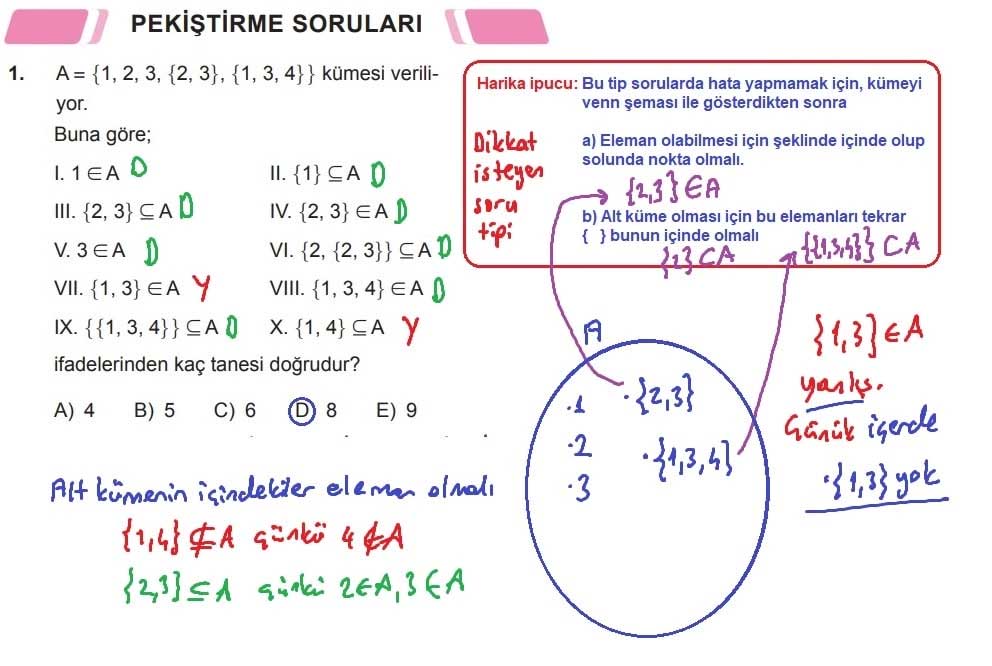 PEKİŞTİRME SORULARI
1. A = {1, 2, 3, {2, 3}, {1, 3, 4}} kümesi verili-
yor.
Buna göre;
I. 1 ∈ A D
II. {1} ⊆ A D
III. {2, 3} ⊆ A D
IV. {2, 3} ∈ A D
V. 3 ∈ A D
VI. {2, {2, 3}} ⊆ A D
VII. {1, 3} ∈ A Y
VIII. {1, 3, 4} ∈ A D
IX. {{1, 3, 4}} ⊆ A D
X. {1, 4} ⊆ A Y
ifadelerinden kaç tanesi doğrudur?
A) 4 B) 5 C) 6 D) 8 E) 9
Harika ipucu: Bu tip sorularda hata yapmamak için, kümeyi
venn şeması ile gösterdikten sonra
Dikkat
isteyen
soru
tipi
a) Eleman olabilmesi için şeklinde içinde olup
solunda nokta olmalı.
{2,3} ∈ A
b) Alt küme olması için bu elemanları tekrar
{ } bunun içinde olmalı
{1} ⊂ A
{{1,3,4}} ⊂ A
A
.1
.2
.3
.{2,3}
.{1,3,4}
{1,3} ∈ A
yanlış.
Çünük içerde
.{1,3} yok
Alt kümenin içindekiler eleman olmalı
{1,4} ⊈ A çünkü 4 ∉ A
{2,3} ⊆ A çünkü 2 ∈ A, 3 ∈ A